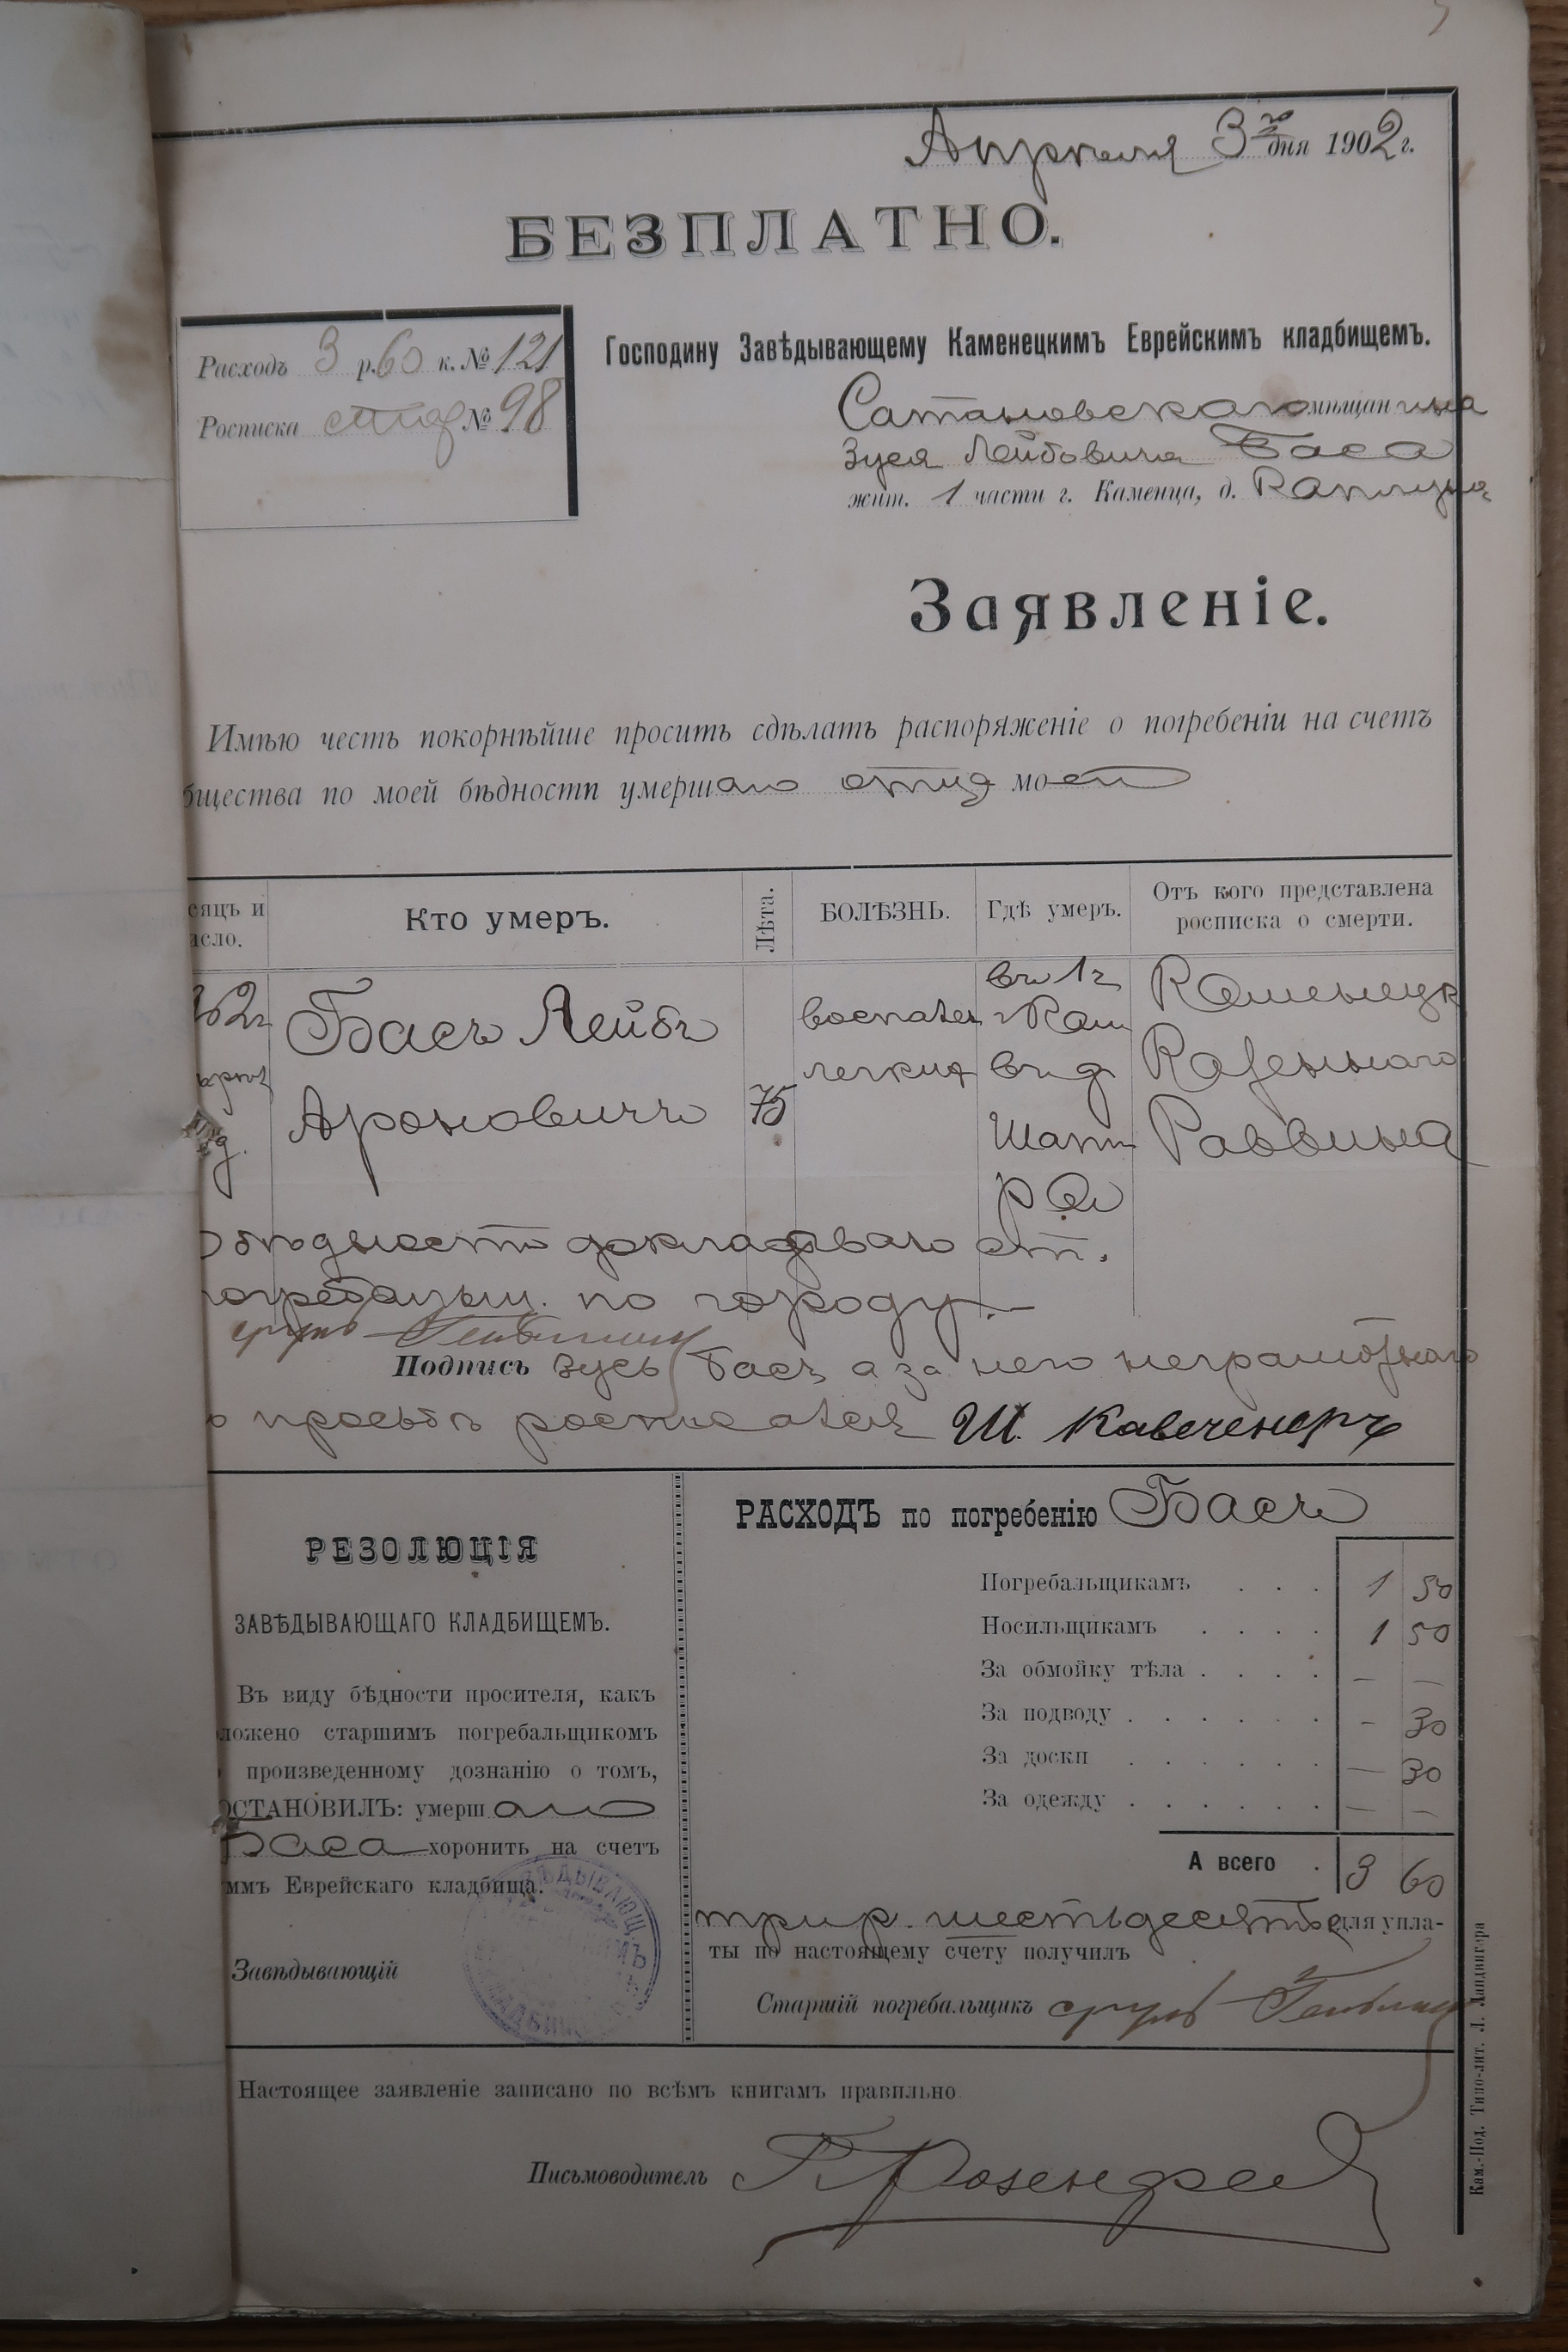 Апрѣля 3го дня 1902 г.
БЕЗПЛАТНО.
Расходъ 3 р. 60 к. № 121
Росписка № 98
Господину Завѣдывающему Каменецкимъ Еврейскимъ кладбищемъ.
Сатановскаго мѣщанина
Зуся Лейбовича Баса
жит. 1 части г. Каменца, д.
Заявленіе.
Имѣю честь покорнѣйше просить сдѣлать распоряженіе о погребеніи на счетъ
бщества по моей бѣдности умершаго отца моего
сяцъ и
исло.
Кто умеръ.
Лѣта.
БОЛѢЗНЬ.
Гдѣ умеръ.
Отъ кого представлена
росписка о смерти.
Басъ Лейбъ
Ароновичъ
75
воспален
легких
въ 1 ч
г Кам
въ д
Шап
ра
Каменецк
Казеннаго
Раввина
О бѣдности докладывалъ ст.
погребальщ. по городу.
Подпись Зусь Басъ а за него неграмотнаго
о просьбѣ росписался Ш.
РЕЗОЛЮЦІЯ
ЗАВѢДЫВАЮЩАГО КЛАДБИЩЕМЪ.
Въ виду бѣдности просителя, какъ
ложено старшимъ погребальщикомъ
произведенному дознанію о томъ,
ОСТАНОВИЛЪ: умершаго
Баса хоронить на счетъ
ммъ Еврейскаго кладбища.
Завѣдывающій
РАСХОДЪ по погребенію Басъ
Погребальщикамъ . . . 1 50
Носильщикамъ . . . . 1 50
За обмойку тѣла . . . . — —
За подводу . . . . . . - 30
За доски . . . . . . — 30
За одежду . . . . . . — —
А всего . 3 60
три р. шестьдесять к для упла-
ты по настоящему счету получилъ
Старшій погребальщикъ
Настоящее заявленіе записано по всѣмъ книгамъ правильно.
Письмоводитель
Кам.-Под. Типо-лит. Л. Ландвигера